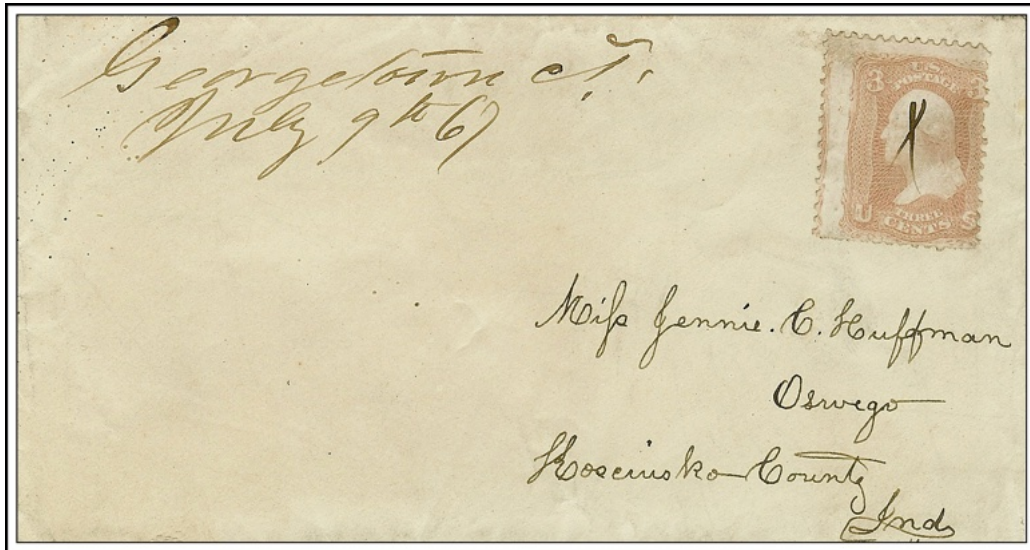 Georgetown C.T.
July 9th 67
U.S.
POSTAGE
3 3
U S
THREE
CENTS
Miſs Jennie. C. Huffman
Oswego
Kosciusko County
Ind